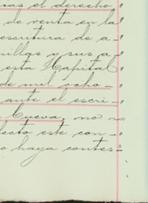 mas el derecho
de venta en la
escritura de a
nillas y sus a
esta Capital
de mil ocho-
ante el escri-
Cueva, no n
lecto este con-
o haya contes-